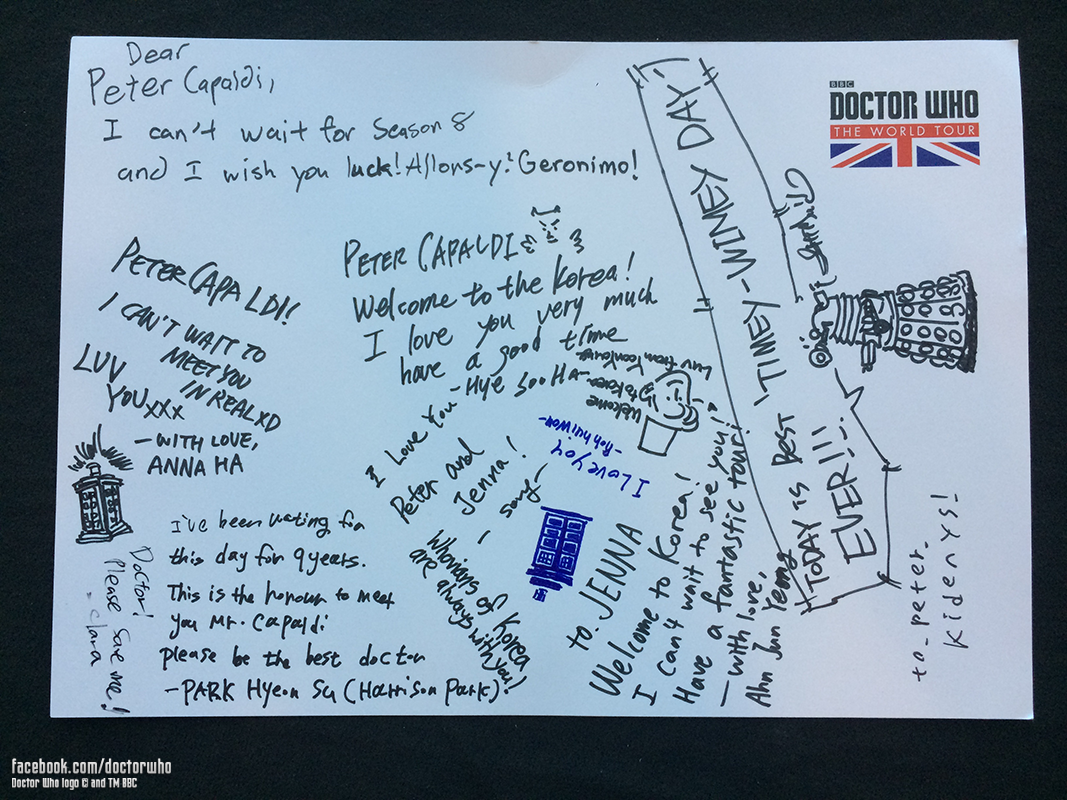 Dear
Peter Capaldi,
I can't wait for season 8
and I wish you luck! Allons-y! Geronimo!
BBC
DOCTOR WHO
THE WORLD TOUR
PETER CAPALDI!
I CAN'T WAIT TO
MEET YOU
IN REAL XD
LUV
YOU xxx
- WITH LOVE,
ANNA HA
PETER CAPALDI
Welcome to the Korea!
I love you very much
have a good time
- Hye Soo Ha -
Welcome
to Korea
Luv from
I Love You
Peter and
Jenna!
I Love you
"TODAY IS BEST 'TIMEY-WIMEY DAY'
EVER!!!
I've been wating for
this day for 9 years.
This is the honour to meet
you Mr. Capaldi
please be the best doctor
- PARK Hyeon Su (Harrison Park)
Doctor!
Please save me!
- clara
Whovians of Korea
are always with you!
to. JENNA
Welcome to Korea!
I can't wait to see you!
Have a fantastic tour!
- with love,
Ahn Jun Yeong
to. peter.
kidenys!
facebook.com/doctorwho
Doctor Who logo © and TM BBC